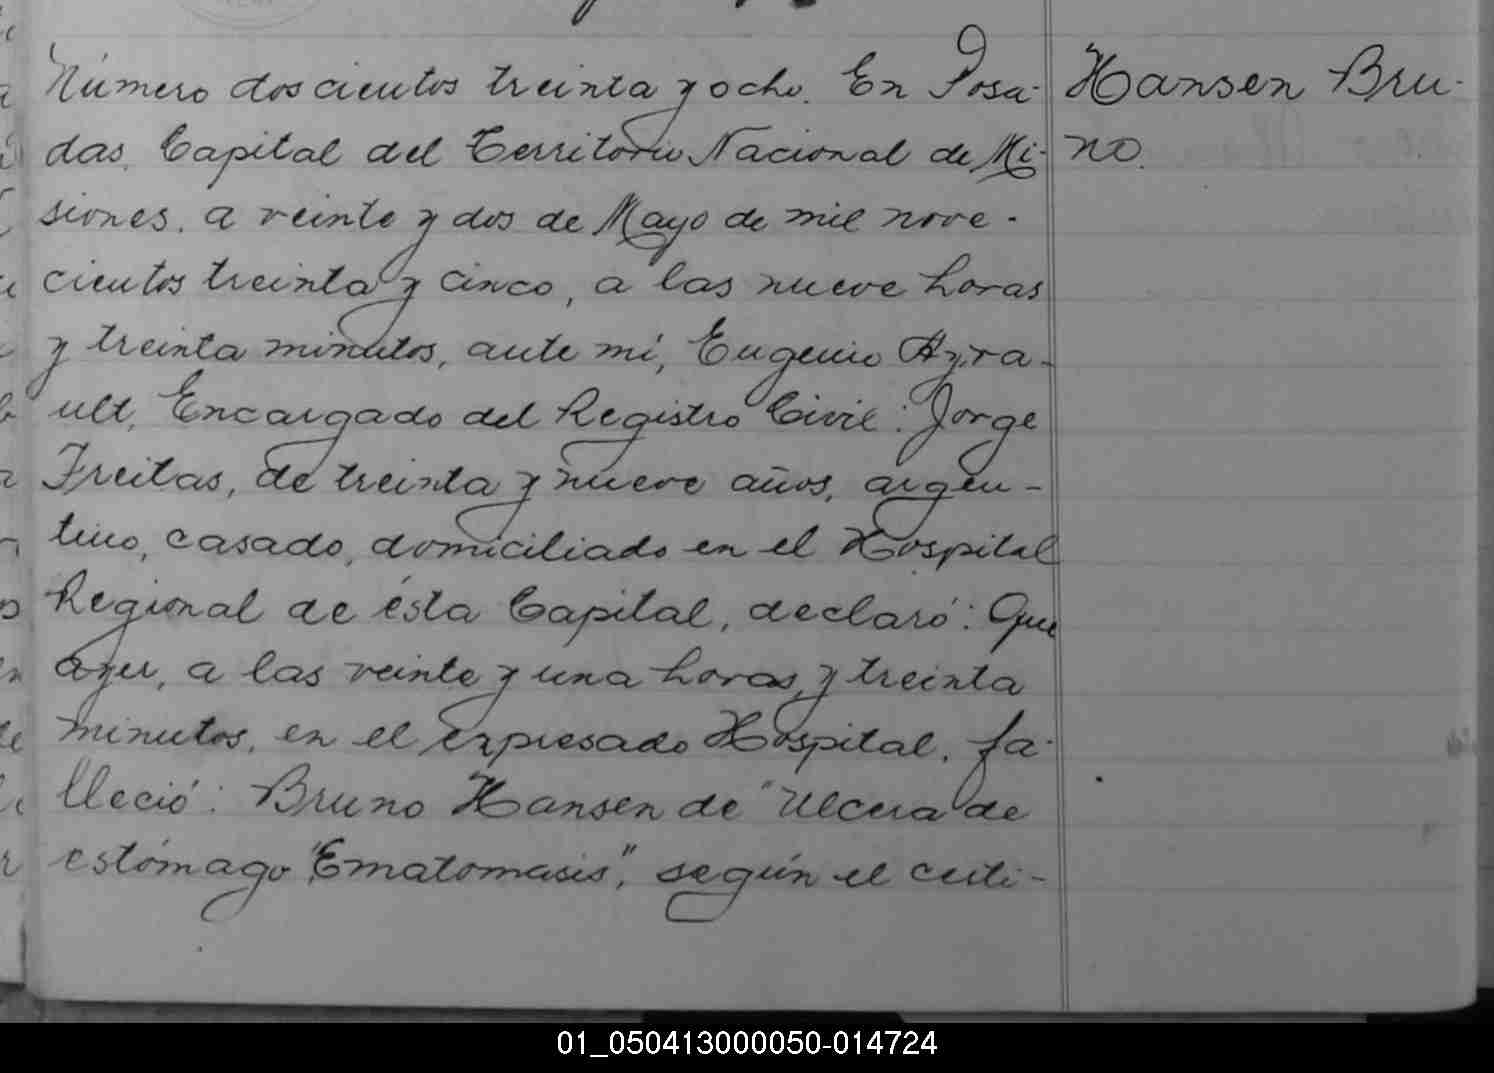 Número doscientos treinta y ocho. En Posa-
das, Capital del Territorio Nacional de Mi-
siones, a veinte y dos de Mayo de mil nove-
cientos treinta y cinco, a las nueve horas
y treinta minutos, ante mí, Eugenio Ayra-
ult, Encargado del Registro Civil: Jorge
Freitas, de treinta y nueve años, argen-
tino, casado, domiciliado en el Hospital
Regional de ésta Capital, declaró: Que
ayer, a las veinte y una horas y treinta
minutos, en el expresado Hospital, fa-
lleció: Bruno Hansen de "Ulcera de
estómago "Ematomasis", según el certi-
Hansen Bru-
no.
01_050413000050-014724